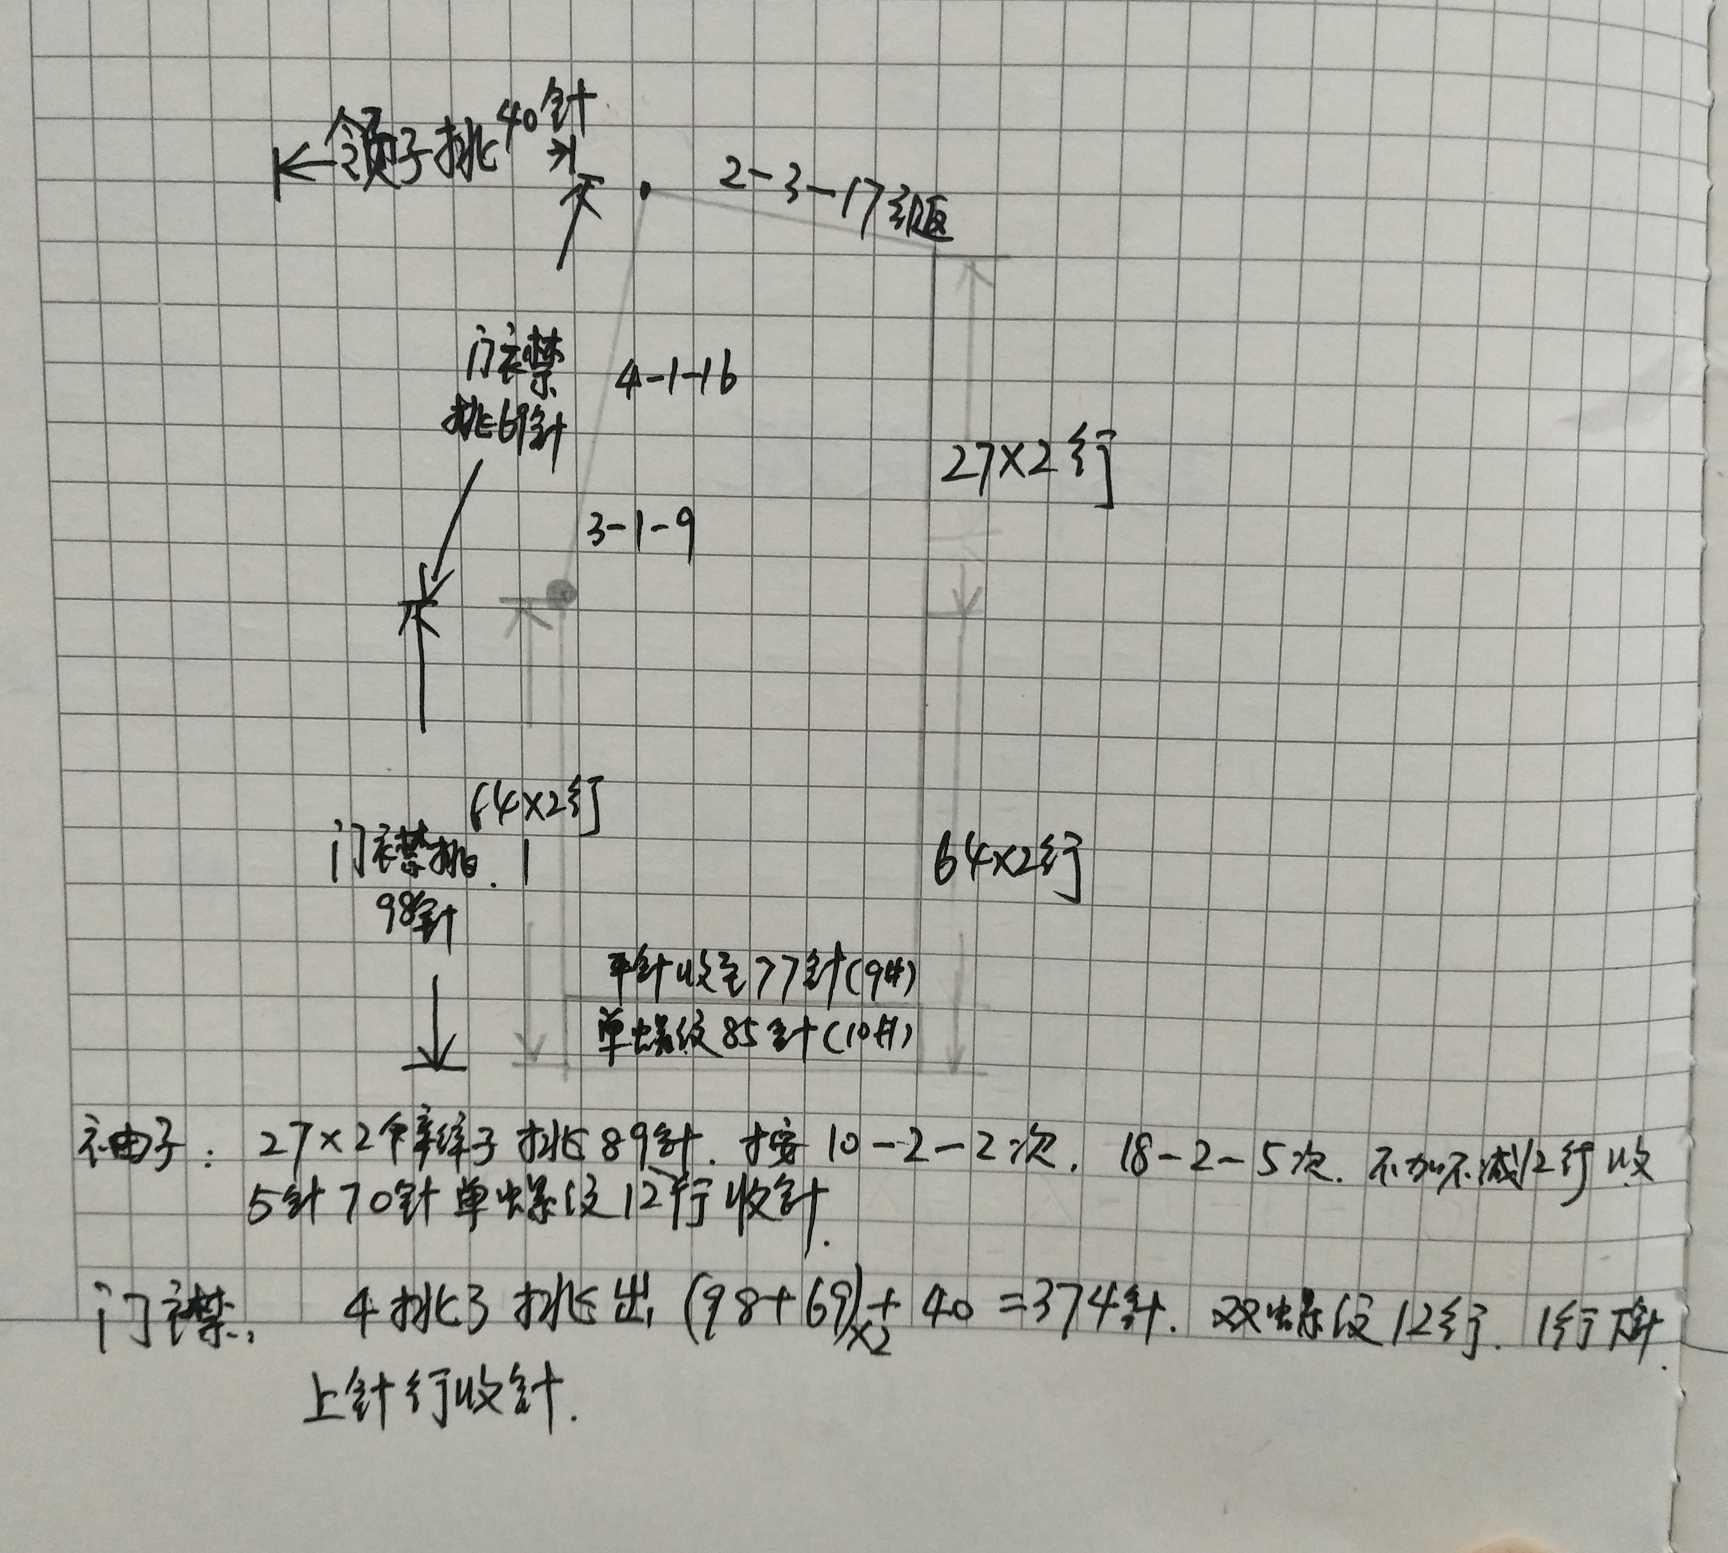 领子挑40针
2-3-17引返
门襟
挑69针
4-1-16
27×2行
3-1-9
64×2行
门襟挑
98针
64×2行
平针收至77针(9#)
单螺纹85针(10#)
袖子: 27×2个辫子挑89针. 按10-2-2次. 18-2-5次. 不加不减12行收
5针70针单螺纹12行收针.
门襟: 4挑3挑出(98+69)×2+40=374针. 双螺纹12行. 1行下针.
上针行收针.